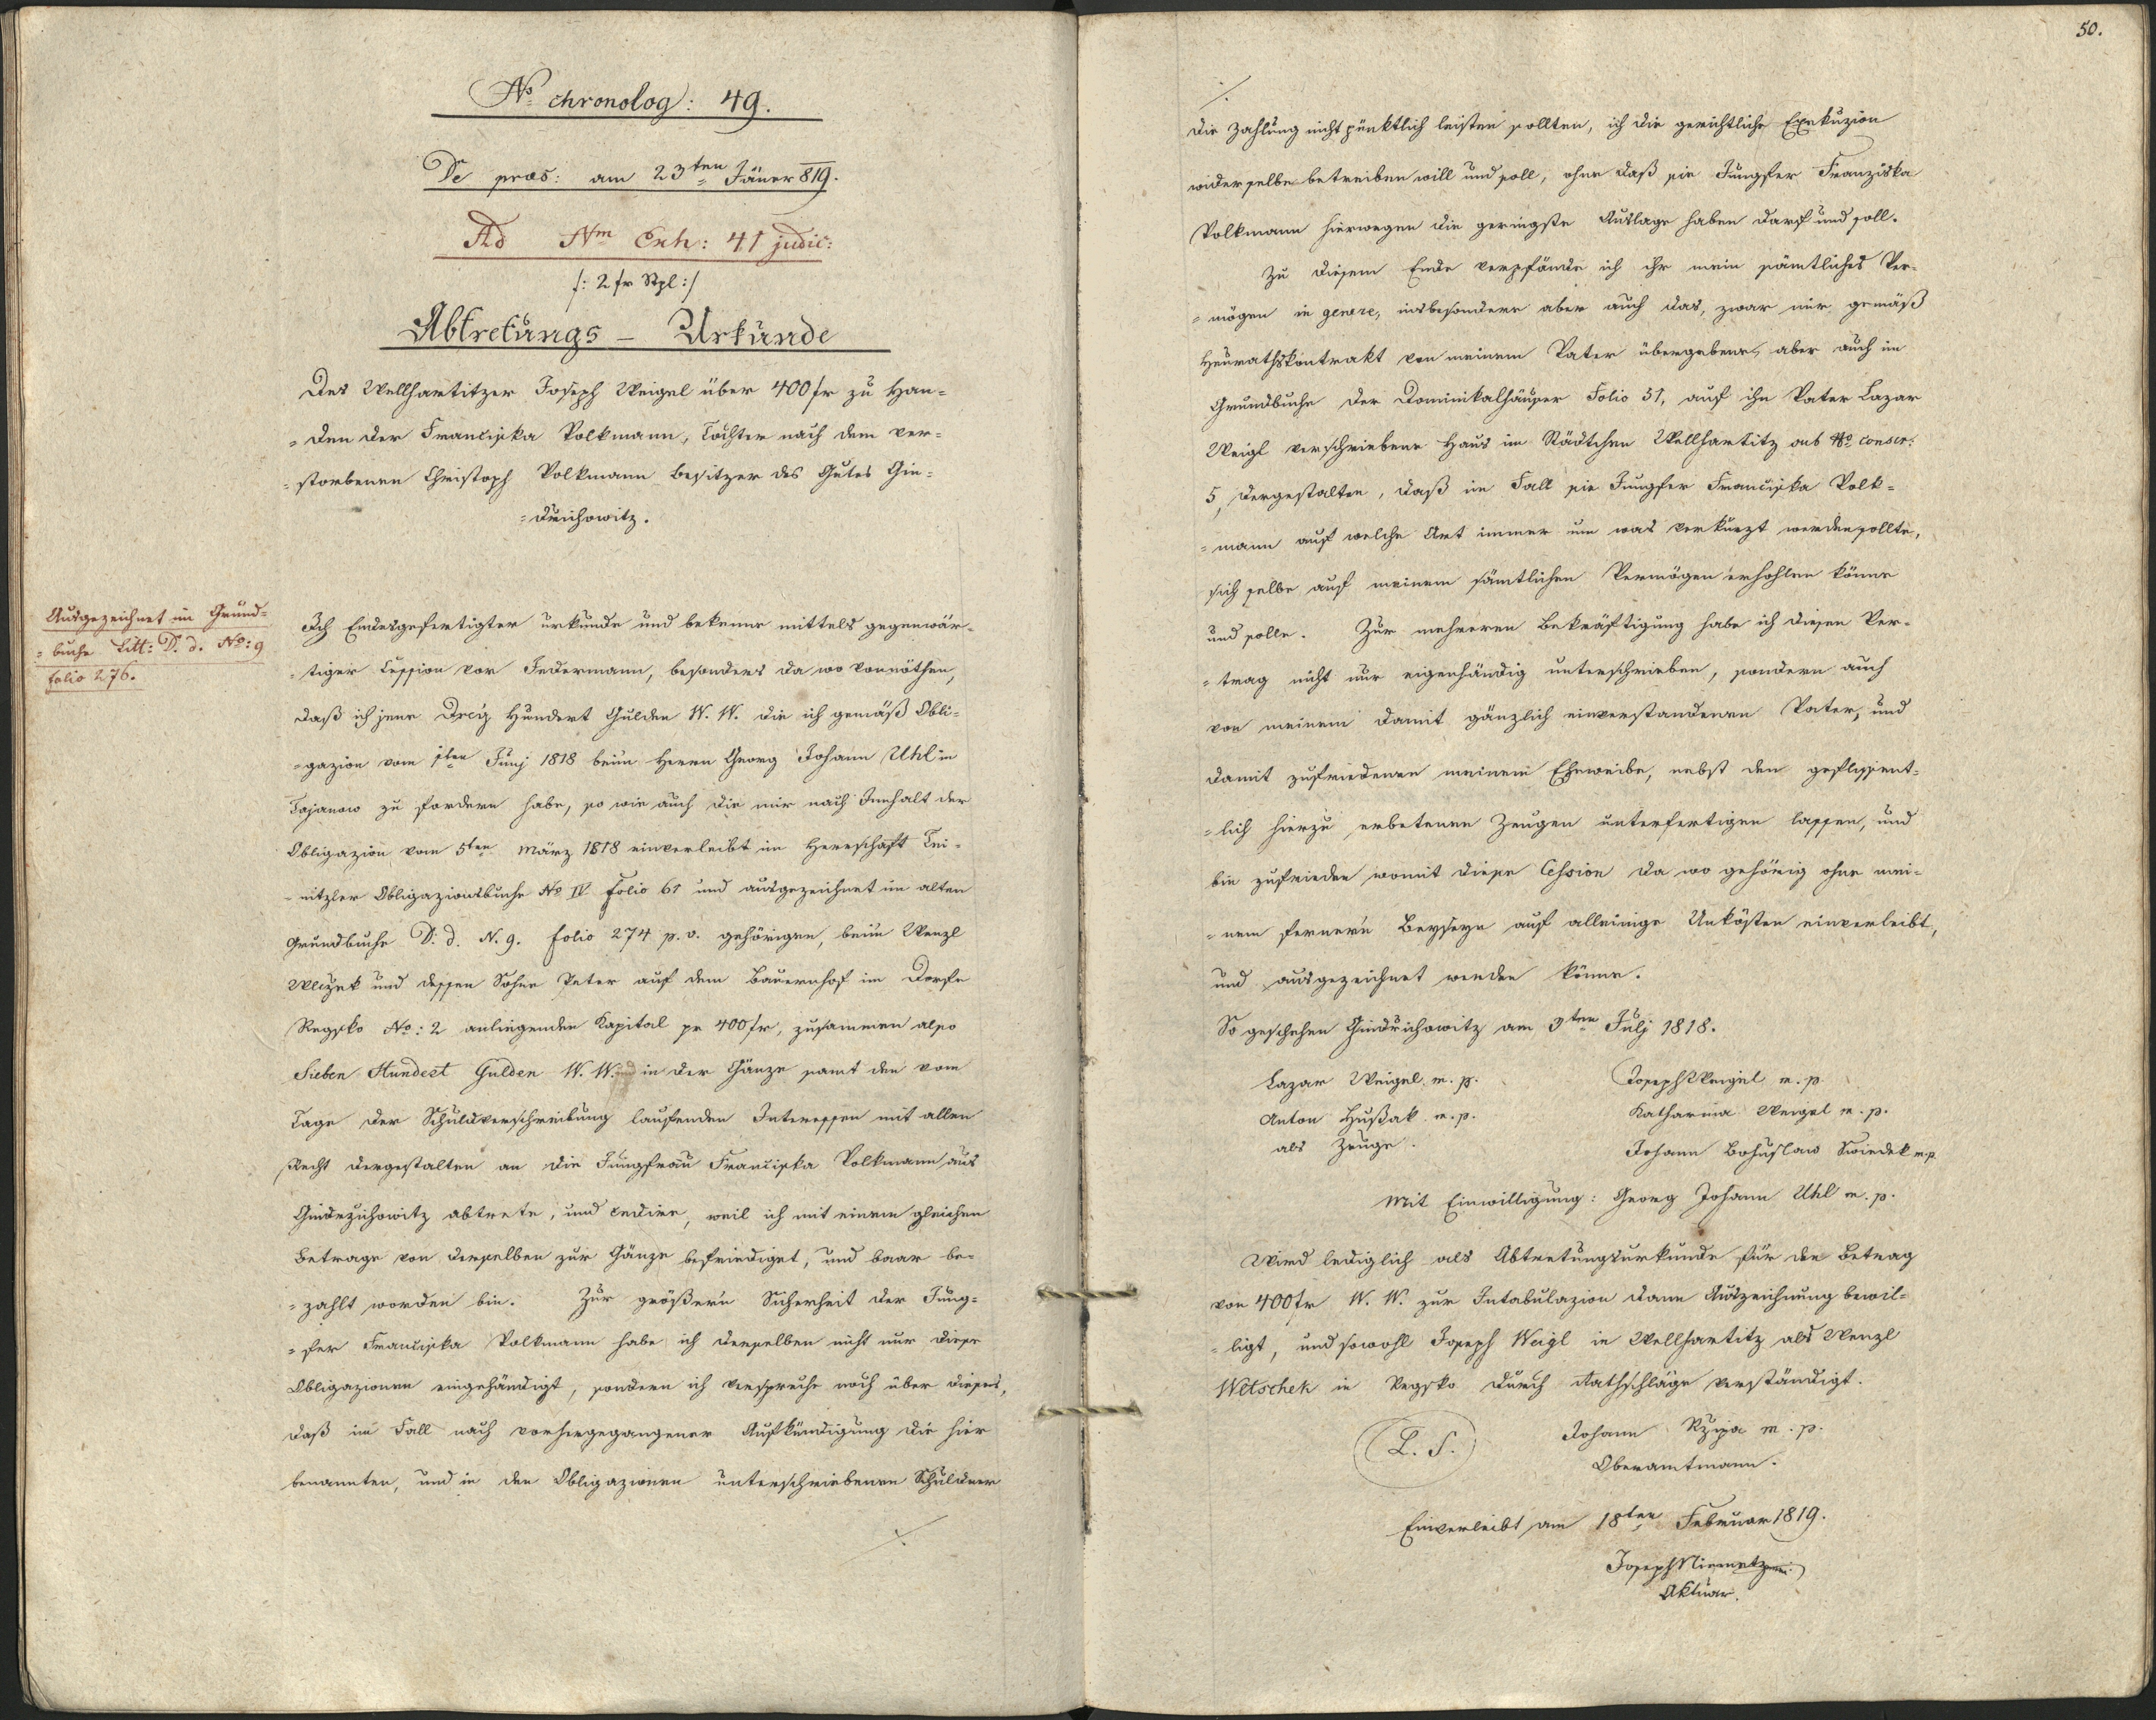 No chronolog: 49.
De præs: am 23ten Jäner 819.
Ad Num Exh: 41 judic:
/: 2 fr Stpl :/
Abtretungs – Urkunde
Des Wellhartitzer Joseph Weigel über 400 fr zu Han=
=den der Franciska Volkmann, Tochter nach dem ver=
=storbenen Christoph Volkmann Besitzer des Gutes Gin=
=drichowitz.
Ausgezeichnet im Grund=
=buche Litt: D. d. No: 9
folio 276.
Ich Endesgefertigter urkunde und bekenne mittels gegenwär=
=tiger Cession vor Jedermann, besonders da wo vonnöthen,
daß ich jene Dreÿ Hundert Gulden W. W. die ich gemäß Obli=
=gazion vom 1ten Junj 1818 beim Herrn Georg Johann Uhl in
Tajanow zu fordern habe, so wie auch die mir nach Innhalt der
Obligazion vom 5ten März 1818 einverleibt im Herrschaft Tei=
=nitzler Obligazionsbuche No IV folio 61 und ausgezeichnet im alten
Grundbuche D: d. N. 9. folio 274 p. v. gehörigen, beim Wenzl
Wlczek und dessen Sohne Peter auf dem Bauernhof im Dorfe
Regsko No: 2 anliegenden Kapital pr 400 fr, zusammen also
Sieben Hundert Gulden W. W. in der Gänze samt den vom
Tage der Schuldverschreibung laufenden Interessen mit allen
Recht dergestalten an die Jungfrau Franciska Volkmann aus
Gindrzichowitz abtrete, und cedire, weil ich mit einem gleichen
Betrage von derselben zur Gänze befriediget, und baar be=
=zahlt worden bin. Zur größern Sicherheit der Jung=
=fer Franciska Volkmann habe ich derselben nicht nur diese
Obligazionen eingehändigt, sondern ich verspreche noch über dieses,
daß im Fall nach vorhergegangener Aufkündigung die hier
benannten, und in den Obligazionen unterschriebenen Schuldner
./.
50.
./.
die Zahlung nicht pünktlich leisten sollten, ich die gerichtliche Exekuzion
wider selbe betreiben will und soll, ohne daß sie Jungfer Franziska
Volkmann hierwegen die geringste Auslage haben darf und soll.
Zu diesem Ende verpfände ich ihr mein sämtliches Ver=
=mögen in genere, insbesondere aber auch das, zwar mir gemäß
Heurathskontrakt von meinem Vater übergebene, aber auch im
Grundbuche der Dominikalhäuser Folio 31, auf ihn Vater Lazar
Weigl verschriebene Haus im Städtchen Wellhartitz sub No conscr:
5, dergestalten, daß im Fall sie Jungfer Franciska Volk=
=mann auf welche Art immer um was verkürzt werden sollte,
sich selbe auf meinem sämtlichen Vermögen erhohlen könne
und solle. Zur mehreren Bekräftigung habe ich diesen Ver=
=trag nicht nur eigenhändig unterschrieben, sondern auch
von meinem damit gänzlich einverstandenen Vater, und
damit zufriedenen meinem Eheweibe, nebst den geflissent=
=lich hierzu erbetenen Zeugen unterfertigen lassen, und
bin zufrieden womit diese Cession da wo gehörig ohne mei=
=nem fernern Beyseyn auf alleinige Unkösten einverleibt,
und ausgezeichnet werden könne.
So geschehen Gindrichowitz am 9ten Julj 1818.
Lazar Weigel m. p. Joseph Weigel m. p.
Anton Hußak m. p. Katharina Weigel m. p.
als Zeuge. Johann Bohuslaw Swiedek m. p.
Mit Einwilligung: Georg Johann Uhl m. p.
Wird lediglich als Abtretungsurkunde für den Betrag
von 400 fr W. W. zur Intabulazion dann Auszeichnung bewil=
=ligt, und sowohl Joseph Weigl in Wellhartitz als Wenzl
Wltschek in Regsko durch Rathschläge verständigt.
(L. S.) Johann Rzipa m. p.
Oberamtmann.
Einverleibt am 18ten Februar 1819.
Joseph Niemetz
Aktuar.